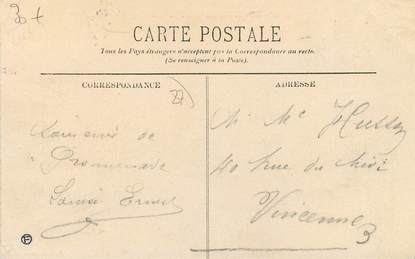 30+
CARTE POSTALE
Tous les Pays étrangers n'acceptent pas la Correspondance au recto.
(Se renseigner à la Poste).
CORRESPONDANCE
27
de
Promenade
Louise Ernest
ADRESSE
M. Mᵉ Husson
40 Rue du Midi
Vincennes